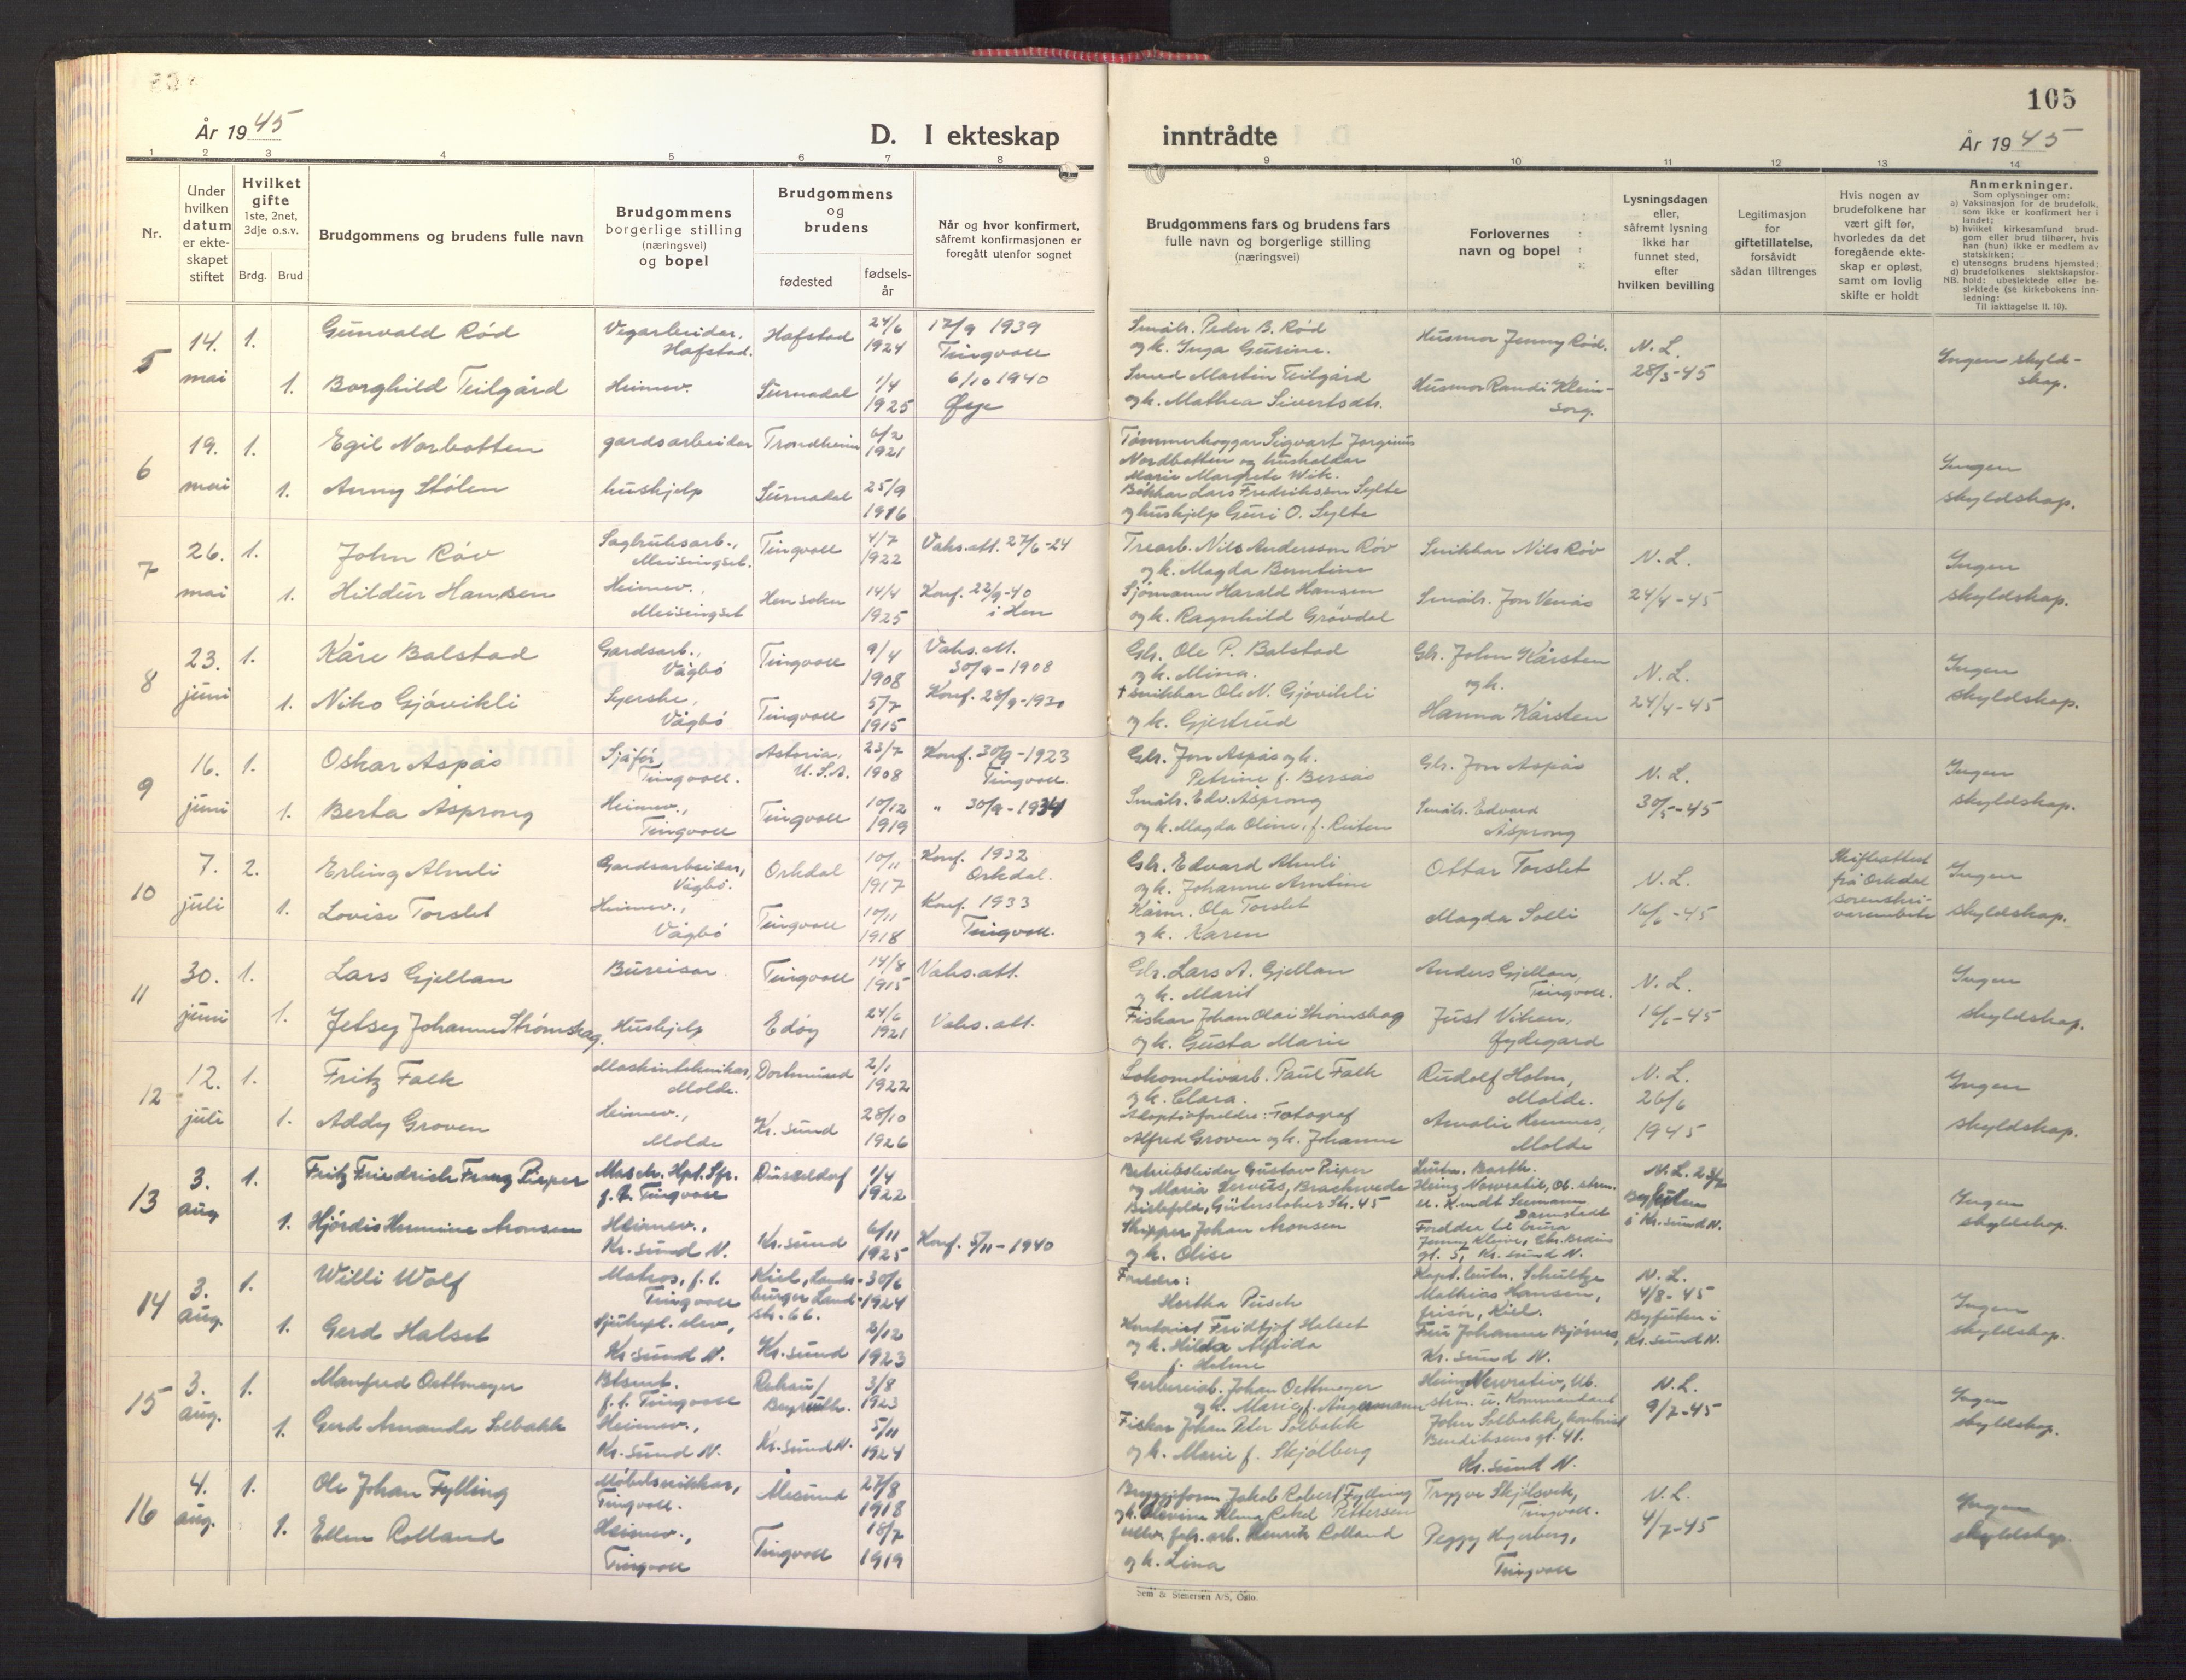 105
År 1945
D. I ekteskap inntrådte
År 1945
1 2 3 4 5 6 7 8 9 10 11 12 13 14
Nr.
Under hvilken datum er ekte-skapet stiftet
Hvilket gifte
1ste, 2net, 3dje o.s.v.
Brdg. Brud
Brudgommens og brudens fulle navn
Brudgommens borgerlige stilling (næringsvei) og bopel
Brudgommens og brudens
fødested
fødsels-år
Når og hvor konfirmert, såfremt konfirmasjonen er foregått utenfor sognet
Brudgommens fars og brudens fars fulle navn og borgerlige stilling (næringsvei)
Forlovernes navn og bopel
Lysningsdagen eller, såfremt lysning ikke har funnet sted, efter hvilken bevilling
Legitimasjon for giftetillatelse, forsåvidt sådan tiltrenges
Hvis nogen av brudefolkene har vært gift før, hvorledes da det foregående ekte-skap er opløst, samt om lovlig skifte er holdt
Anmerkninger.
Som oplysninger om:
a) Vaksinasjon for de brudefolk, som ikke er konfirmert her i landet;
b) hvilket kirkesamfund brud-gom eller brud tilhører, hvis han (hun) ikke er medlem av statskirken;
c) utensogns brudens hjemsted;
d) brudefolkenes slektskapsfor-hold: ubeslektede eller be-slektede (se kirkebokens inn-ledning:
NB.
Til iakttagelse II. 10).
5
14. mai
1. Gunvald Rød
Vegarbeidar, Hafstad.
Hafstad
24/6 1924
17/9 1939 Tingvoll
Småbr. Peder B. Rød
og k. Inga Gurine.
Husmor Jenny Rød.
N. L.
28/3-45
Ingen skyld-skap.
1. Borghild Teilgård
Heimev.
Surnadal
1/4 1925
6/10 1940 Øye
Smed Martin Teilgård
og k. Mathea Sivertsdtr.
Husmor Randi Klein-sorg.
6
19. mai
1. Egil Norbotten
gardsarbeidar
Trondheim
6/2 1921
Tømmerhoggar Sigvart Jorginus
Nordbotten og husholdar
Marie Margrete Wik.
Ingen skyldskap.
1. Anny Stølen
hushjelp
Surnadal
25/9 1916
Bøkkar Lars Fredriksson Sylte
og hushjelp Guri O. Sylte
7
26. mai
1. John Røv
Sagbruksarb., Meisingset.
Tingvoll
4/7 1922
Vaks.att. 27/6-24
Trearb. Nils Andersson Røv
og k. Magda Berntine
Snikkar Nils Røv
N. L.
24/4-45
Ingen skyldskap.
1. Hildur Hansen
Heimev., Meisingset
Hen sokn
14/4 1925
Konf. 22/9-40 i Hen
Sjømann Harald Hansen
og k. Ragnhild Grøvdal
Småbr. Jon Venås
8
23. juni
1. Kåre Balstad
Gardsarb., Vågbø
Tingvoll
9/4 1908
Vaks.att. 30/9-1908
Gbr. Ole P. Balstad
og k. Mina.
Gbr. John Kårsten
og k.
Hanna Kårsten
N. L.
24/4-45
Ingen skyldskap.
1. Niko Gjøvikli
Syerske, Vågbø
Tingvoll
5/7 1915
Konf. 28/9-1930
† snikkar Ole N. Gjøvikli
og k. Gjertrud
9
16. juni
1. Oskar Aspås
Sjåfør, Tingvoll.
Astoria, U.S.A.
23/7 1908
Konf. 30/9-1923 Tingvoll.
Gbr. Jon Aspås og k.
Petrine f. Bersås
Gbr. Jon Aspås
N. L.
30/5-45
Ingen skyldskap.
1. Berta Åsprong
Heimev., Tingvoll
Tingvoll
10/12 1919
" 30/9-1934
Småbr. Edv. Åsprong
og k. Magda Oline, f. Reiten
Småbr. Edvard Åsprong
10
7. juli
2. Erling Almli
Gardsarbeidar, Vågbø.
Orkdal
10/11 1917
Konf. 1932 Orkdal.
Gbr. Edvard Almli
og k. Johanne Arntine
Ottar Torslet
N. L.
16/6-45
Skifteattest frå Orkdal sorenskri-varembete
Ingen skyldskap.
1. Lovise Torslet
Heimev., Vågbø
Tingvoll
10/11 1918
Konf. 1933 Tingvoll.
Kårm. Ola Torslet
og k. Karen
Magda Solli
11
30. juni
1. Lars Gjellan
Bureisar
Tingvoll
14/8 1915
Vaks.att.
Gbr. Lars A. Gjellan
og k. Marit
Anders Gjellan, Tingvoll.
N. L.
16/6-45
Ingen skyldskap.
1. Jetsey Johanne Strømskag.
Hushjelp
Edøy
24/6 1921
Vaks. att.
Fiskar Johan Olai Strømskag
og k. Gusta Marie
Just Viken, Øydegard
12
12. juli
1. Fritz Falk
Maskinteknikar, Molde.
Dortmund
2/1 1922
Lokomotivarb. Paul Falk
og k. Clara.
Rudolf Holm, Molde.
N. L.
26/6 1945
Ingen skyldskap.
1. Addy Groven
Heimev., Molde
Kr. sund
28/10 1926
Adoptivforeldre: Fotograf
Alfred Groven og k. Johanne
Amalie Hemnes, Molde
13
3. aug
1. Fritz Friedrich Franz Pieper
Masch. Hpt. Gfr. f. t. Tingvoll
Düsseldorf
1/4 1922
Betriebsleider Gustav Pieper
og Maria Servüs, Brackwede
Bielefeld, Gütersloher Str. 45
Leutn. Barth.
Heinz Nowratil, Ob. strm.
u. Kmdt Seemann Darmstadt
N. L. 23/7
Byfuten i Kr. sund N.
Ingen skyldskap.
1. Hjørdis Hermine Aronsen
Heimev., Kr. sund N.
Kr. sund
6/11 1925
Konf. 5/11-1940
Skipper Johan Aronsen
og k. Olise
Foreldre til brura
Jenny Kleive, Chr. Bruuns
gt. 5, Kr. sund N.
14
3. aug.
1. Willi Wolf
Matros, f. t. Tingvoll
Kiel, str. 66.
30/6 1924
Foreldre:
Hertha Pusch
Kapt. leutn. Schultze
Mathias Hansen, frisør, Kiel.
N. L.
4/8-45
Byfuten i Kr. sund N.
Ingen skyldskap.
1. Gerd Halset
Sjukepl. elev, Kr. sund N.
Kr. sund
2/12 1923
Kontorist Fridtjof Halset
og k. Hilda Alfrida
f. Holme
Fru Johanne Bjørnes,
Kr. sund N.
15
3. aug.
1. Manfred Oettmeyer
Btsmt. f. t. Tingvoll
Rehau/ Bayreuth.
3/8 1923
Gerbereiarb. Johan Oettmeyer
og k. Marie f. Angermann
strm. u. Kommandant
N. L.
9/7-45
Ingen skyldskap.
1. Gerd Amanda Solbakk
Heimev., Kr. sund N.
Kr. sund N.
5/11 1924
Fiskar Johan Peter Solbakk
og k. Marie f. Skjølberg
John Solbakk, kontorist
Bendiksens gt. 41.
Kr. sund N.
16
4. aug.
1. Ole Johan Fylling
Møbelsnikkar, Tingvoll.
Ålesund
27/8 1918
Bryggeform. Jakob Robert Fylling
og k. Olevine Rakel Pettersen
Trygve Skjølsvik, Tingvoll.
N. L.
4/7-45
Ingen skyldskap.
1. Ellen Rolland
Heimev., Tingvoll
Tingvoll
18/7 1919
Ullv. fabr. arb. Henrik Rolland
og k. Lina
Peggy Hagerberg, Tingvoll
Sem & Stenersen A/S, Oslo.